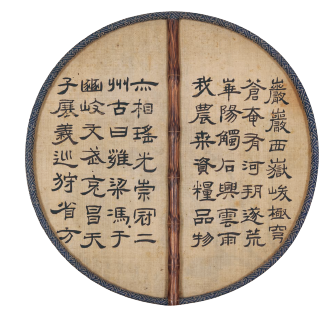 巖巖西嶽峻極穹
蒼奄有河朔遂荒
華陽觸石興雲雨
我農桑資糧品物
亦相瑤光崇冠二
州古曰雍梁馮于
豳岐文武克昌天
子展義巡狩省方